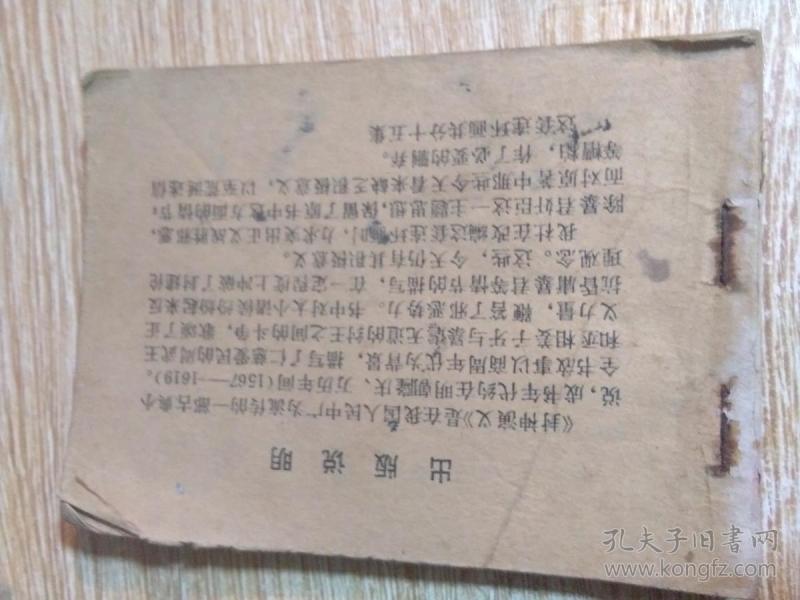 出版说明
《封神演义》是在我国人民中广为流传的一部古典小
说，成书年代约在明朝隆庆、万历年间(1567——1619)。
全书故事以商周年代为背景，描写了仁慈爱民的周武王
和丞相姜子牙与暴虐无道的纣王之间的斗争，歌颂了正
义力量，鞭笞了邪恶势力。书中对大小诸侯纷纷起来反
抗昏庸暴君等情节的描写，在一定程度上冲破了封建伦
理观念。这些，今天仍有其积极意义。
我社在改编这套连环画时，力求突出正义战胜邪恶，
除暴君奸臣这一主题思想，保留了原书中这方面的情节；
而对原著中那些今天看来缺乏积极意义，以至荒诞迷信
等糟粕，作了必要的删弃。
这套连环画共分十五集
孔夫子旧书网
www.kongfz.com